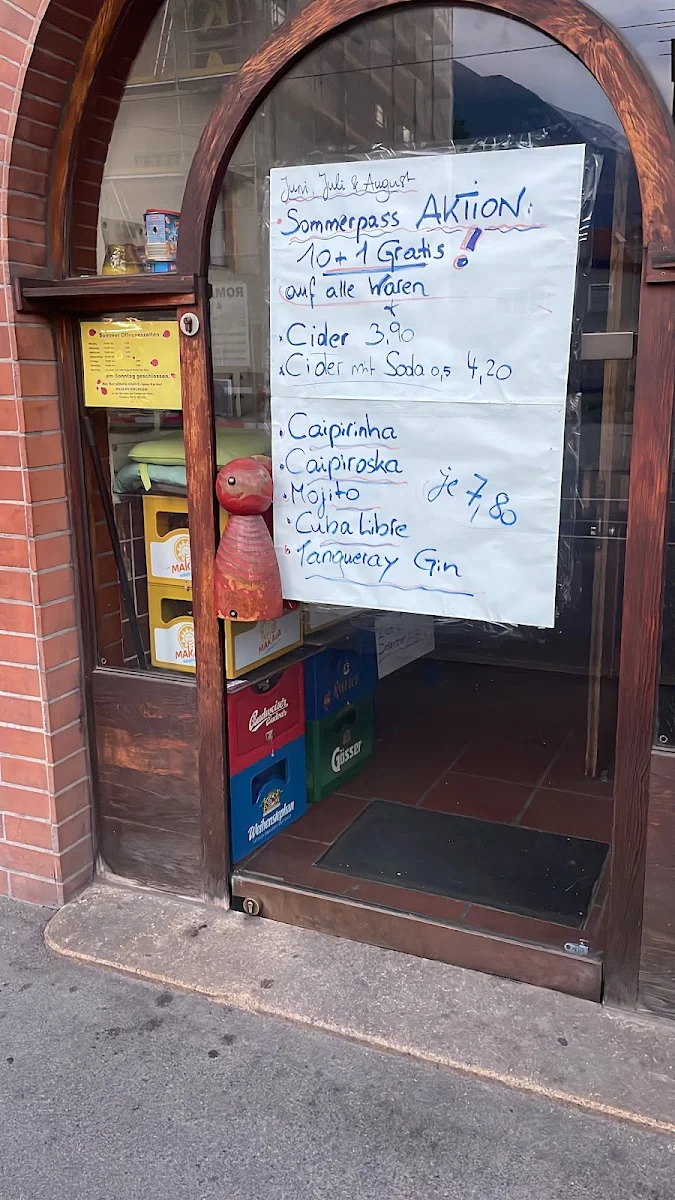 Juni, Juli & August
Sommerpass AKTION:
10+1 Gratis!
auf alle Waren
Cider 3,90
Cider mit Soda 0,5 4,20
Caipirinha
Caipiroska
Mojito
je 7,80
Cuba Libre
Tanqueray Gin
Sommer Öffnungszeiten
am Sonntag geschlossen.
MAK
MAK
MAKAVA
Budweiser
Gösser
Weihenstephan